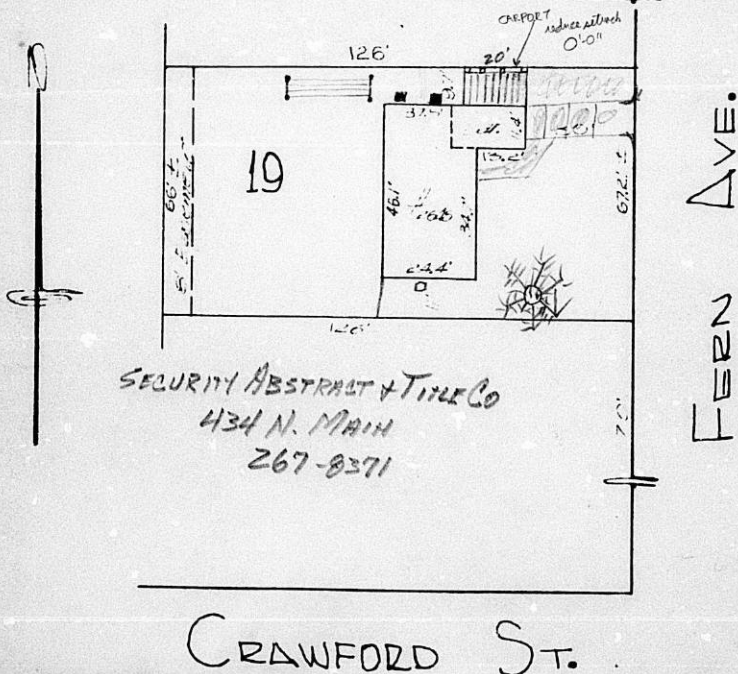 N
CARPORT
reduce setback
0'-0"
126'
20'
19
13.2'
46.1'
24.4'
66' ±
67.2' ±
126'
70'
SECURITY ABSTRACT & TITLE CO
434 N. MAIN
267-8371
FERN AVE.
CRAWFORD ST.